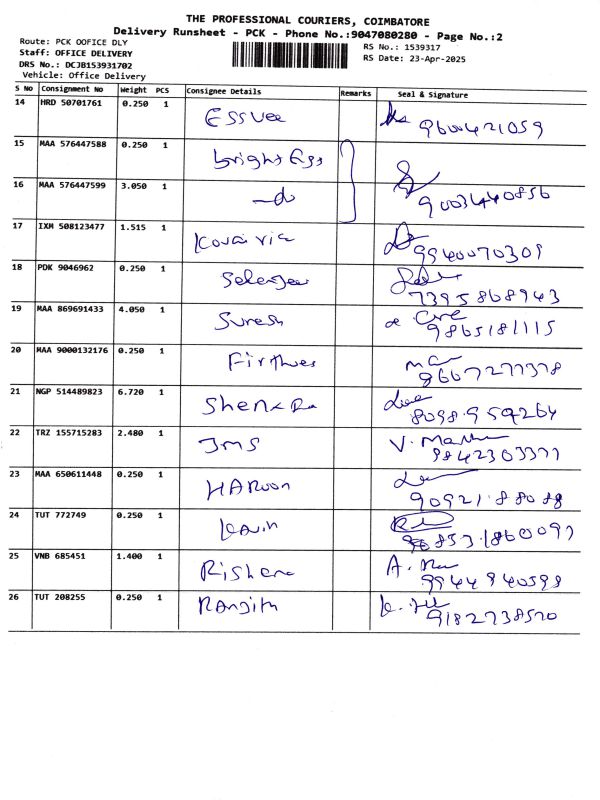 THE PROFESSIONAL COURIERS, COIMBATORE
Delivery Runsheet - PCK - Phone No.:9047080280 - Page No.:2
Route: PCK OOFICE DLY
RS No.: 1539317
Staff: OFFICE DELIVERY
RS Date: 23-Apr-2025
DRS No.: DCJB153931702
Vehicle: Office Delivery
S No Consignment No Weight PCS Consignee Details Remarks Seal & Signature
14 HRD 50701761 0.250 1 ESSVee 9600421059
15 MAA 576447588 0.250 1 bright Egs
16 MAA 576447599 3.050 1 -do 9003440856
17 IXM 508123477 1.515 1 9940070309
18 PDK 9046962 0.250 1 7395868943
19 MAA 869691433 4.050 1 Suresh 9865181115
20 MAA 9000132176 0.250 1 8667277378
21 NGP 514489823 6.720 1 8098959264
22 TRZ 155715283 2.480 1 JMS 9842303377
23 MAA 650611448 0.250 1 HARoon 9092188088
24 TUT 772749 0.250 1 kavin
25 VNB 685451 1.400 1 9944940598
26 TUT 208255 0.250 1 Ranjith 9182738570